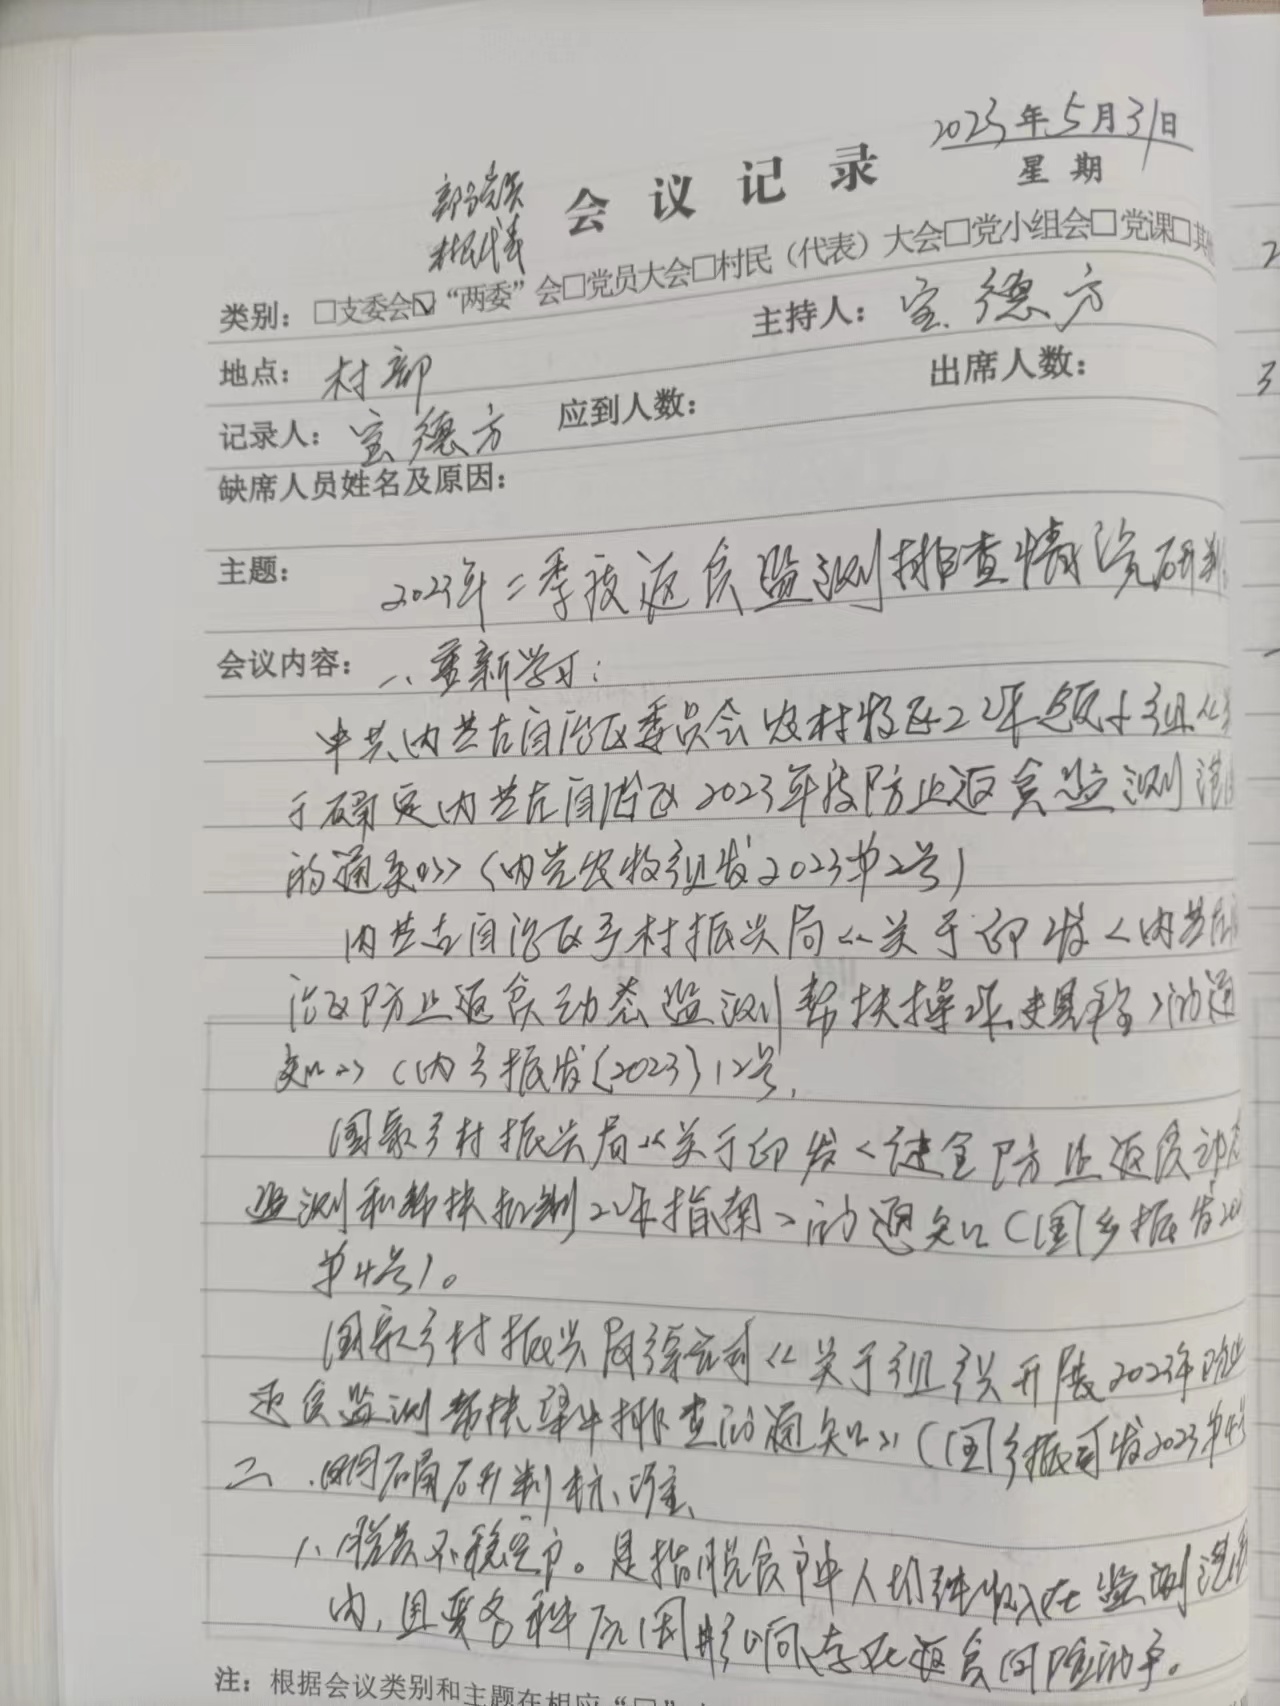 2023年5月31日
会议记录
星期
村民代表
类别：□支委会☑“两委”会□党员大会□村民（代表）大会□党小组会□党课□其他
地点：村部 主持人：宝德方
记录人：宝德方 应到人数： 出席人数：
缺席人员姓名及原因：
主题：2023年二季度返贫监测排查情况研判
会议内容：一、重新学习：
中共内蒙古自治区委员会农村牧区工作领导小组《关
于确定内蒙古自治区2023年度防止返贫监测范围
的通知》（内党农牧组发2023第2号）
内蒙古自治区乡村振兴局《关于印发〈内蒙古自
治区防止返贫动态监测帮扶操作规程〉的通
知》（内乡振发〔2023〕12号，
国家乡村振兴局《关于印发〈健全防止返贫动态
监测和帮扶机制工作指南〉的通知》（国乡振发202
第4号）。
国家乡村振兴局综合司《关于组织开展2023年防止
返贫监测帮扶集中排查的通知》（国乡振司发2023第4号
二、明确研判标准、
1、脱贫不稳定户。是指脱贫户中人均纯收入在监测范围
内，且受各种原因影响，存在返贫风险的户。
注：根据会议类别和主题在相应“□”
2
3